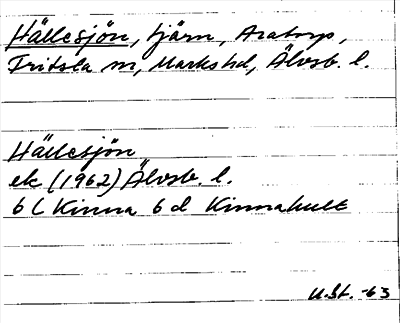 Hällesjön, tjärn, Aratorp,
Fritsla sn, Marks hd, Älvsb. l.
Hällesjön
ek (1962) Älvsb. l.
6 C Kinna 6 d Kinnahult
U.St. -63